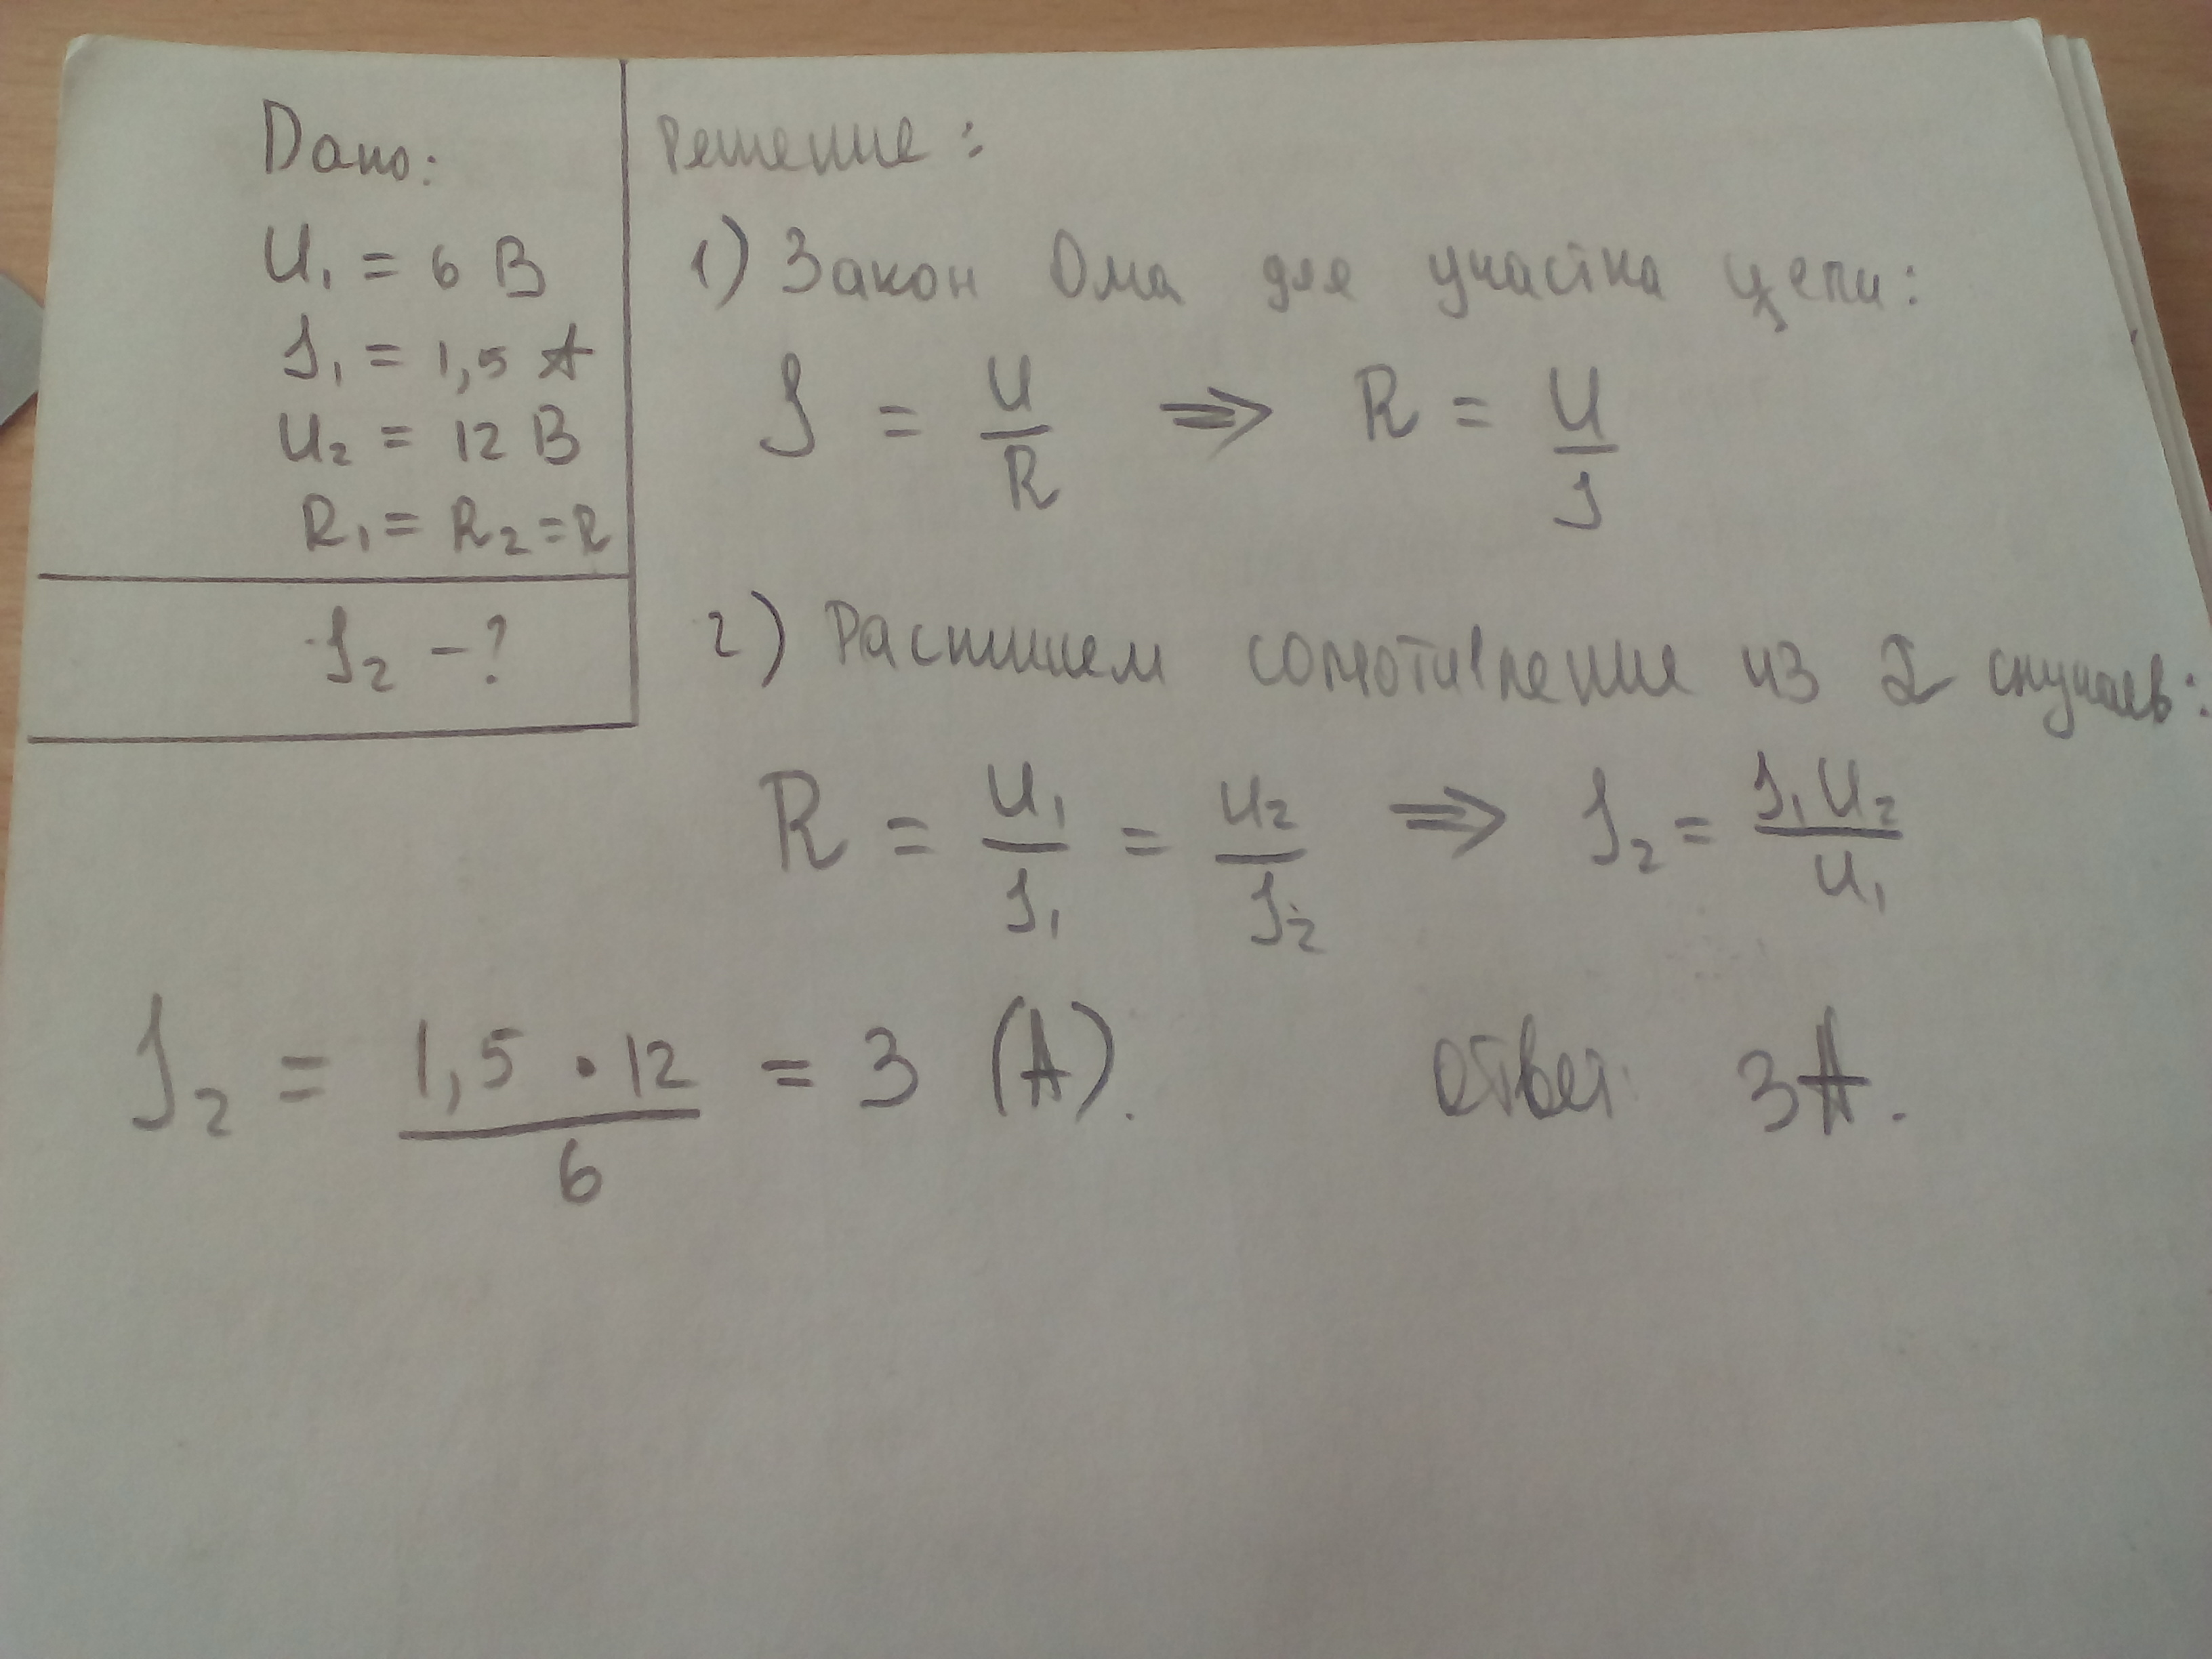 Дано:
U₁ = 6 В
I₁ = 1,5 А
U₂ = 12 В
R₁ = R₂ = R
I₂ - ?
Решение:
1) Закон Ома для участка цепи:
I = U/R ⇒ R = U/I
2) Распишем сопротивление из 2 случаев:
R = U₁/I₁ = U₂/I₂ ⇒ I₂ = I₁U₂/U₁
I₂ = 1,5 · 12/6 = 3 (А).
Ответ: 3А.